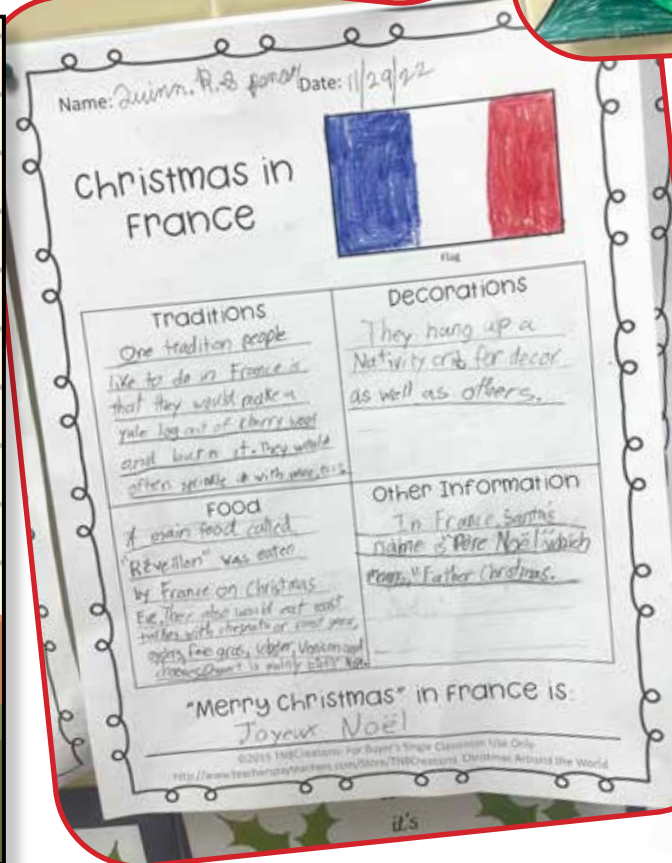 Name: Quinn. R. & Date: 11/29/22
Christmas in
France
Flag
Traditions
One traditon people
like to do in France is
that they would make a
yule log out of cherry wood
and burn it. They would
often sprinkle it with
Decorations
They hang up a
Nativity crib for decor
as well as others.
Food
A main food called
"Réveillon" was eaten
by France on Christmas
Eve. They also would eat roast
turkey with chestnuts or roast goose,
oysters, foie gras, lobster, Venison and
cheeses.
Other Information
In France, Santa's
name is "Père Noël" which
means "Father Christmas.
"Merry Christmas" in France is:
Joyeux Noël
©2015 TNBCreations: For Buyer's Single Classroom Use Only
http://www.teacherspayteachers.com/Store/TNBCreations Christmas Around the World
it's